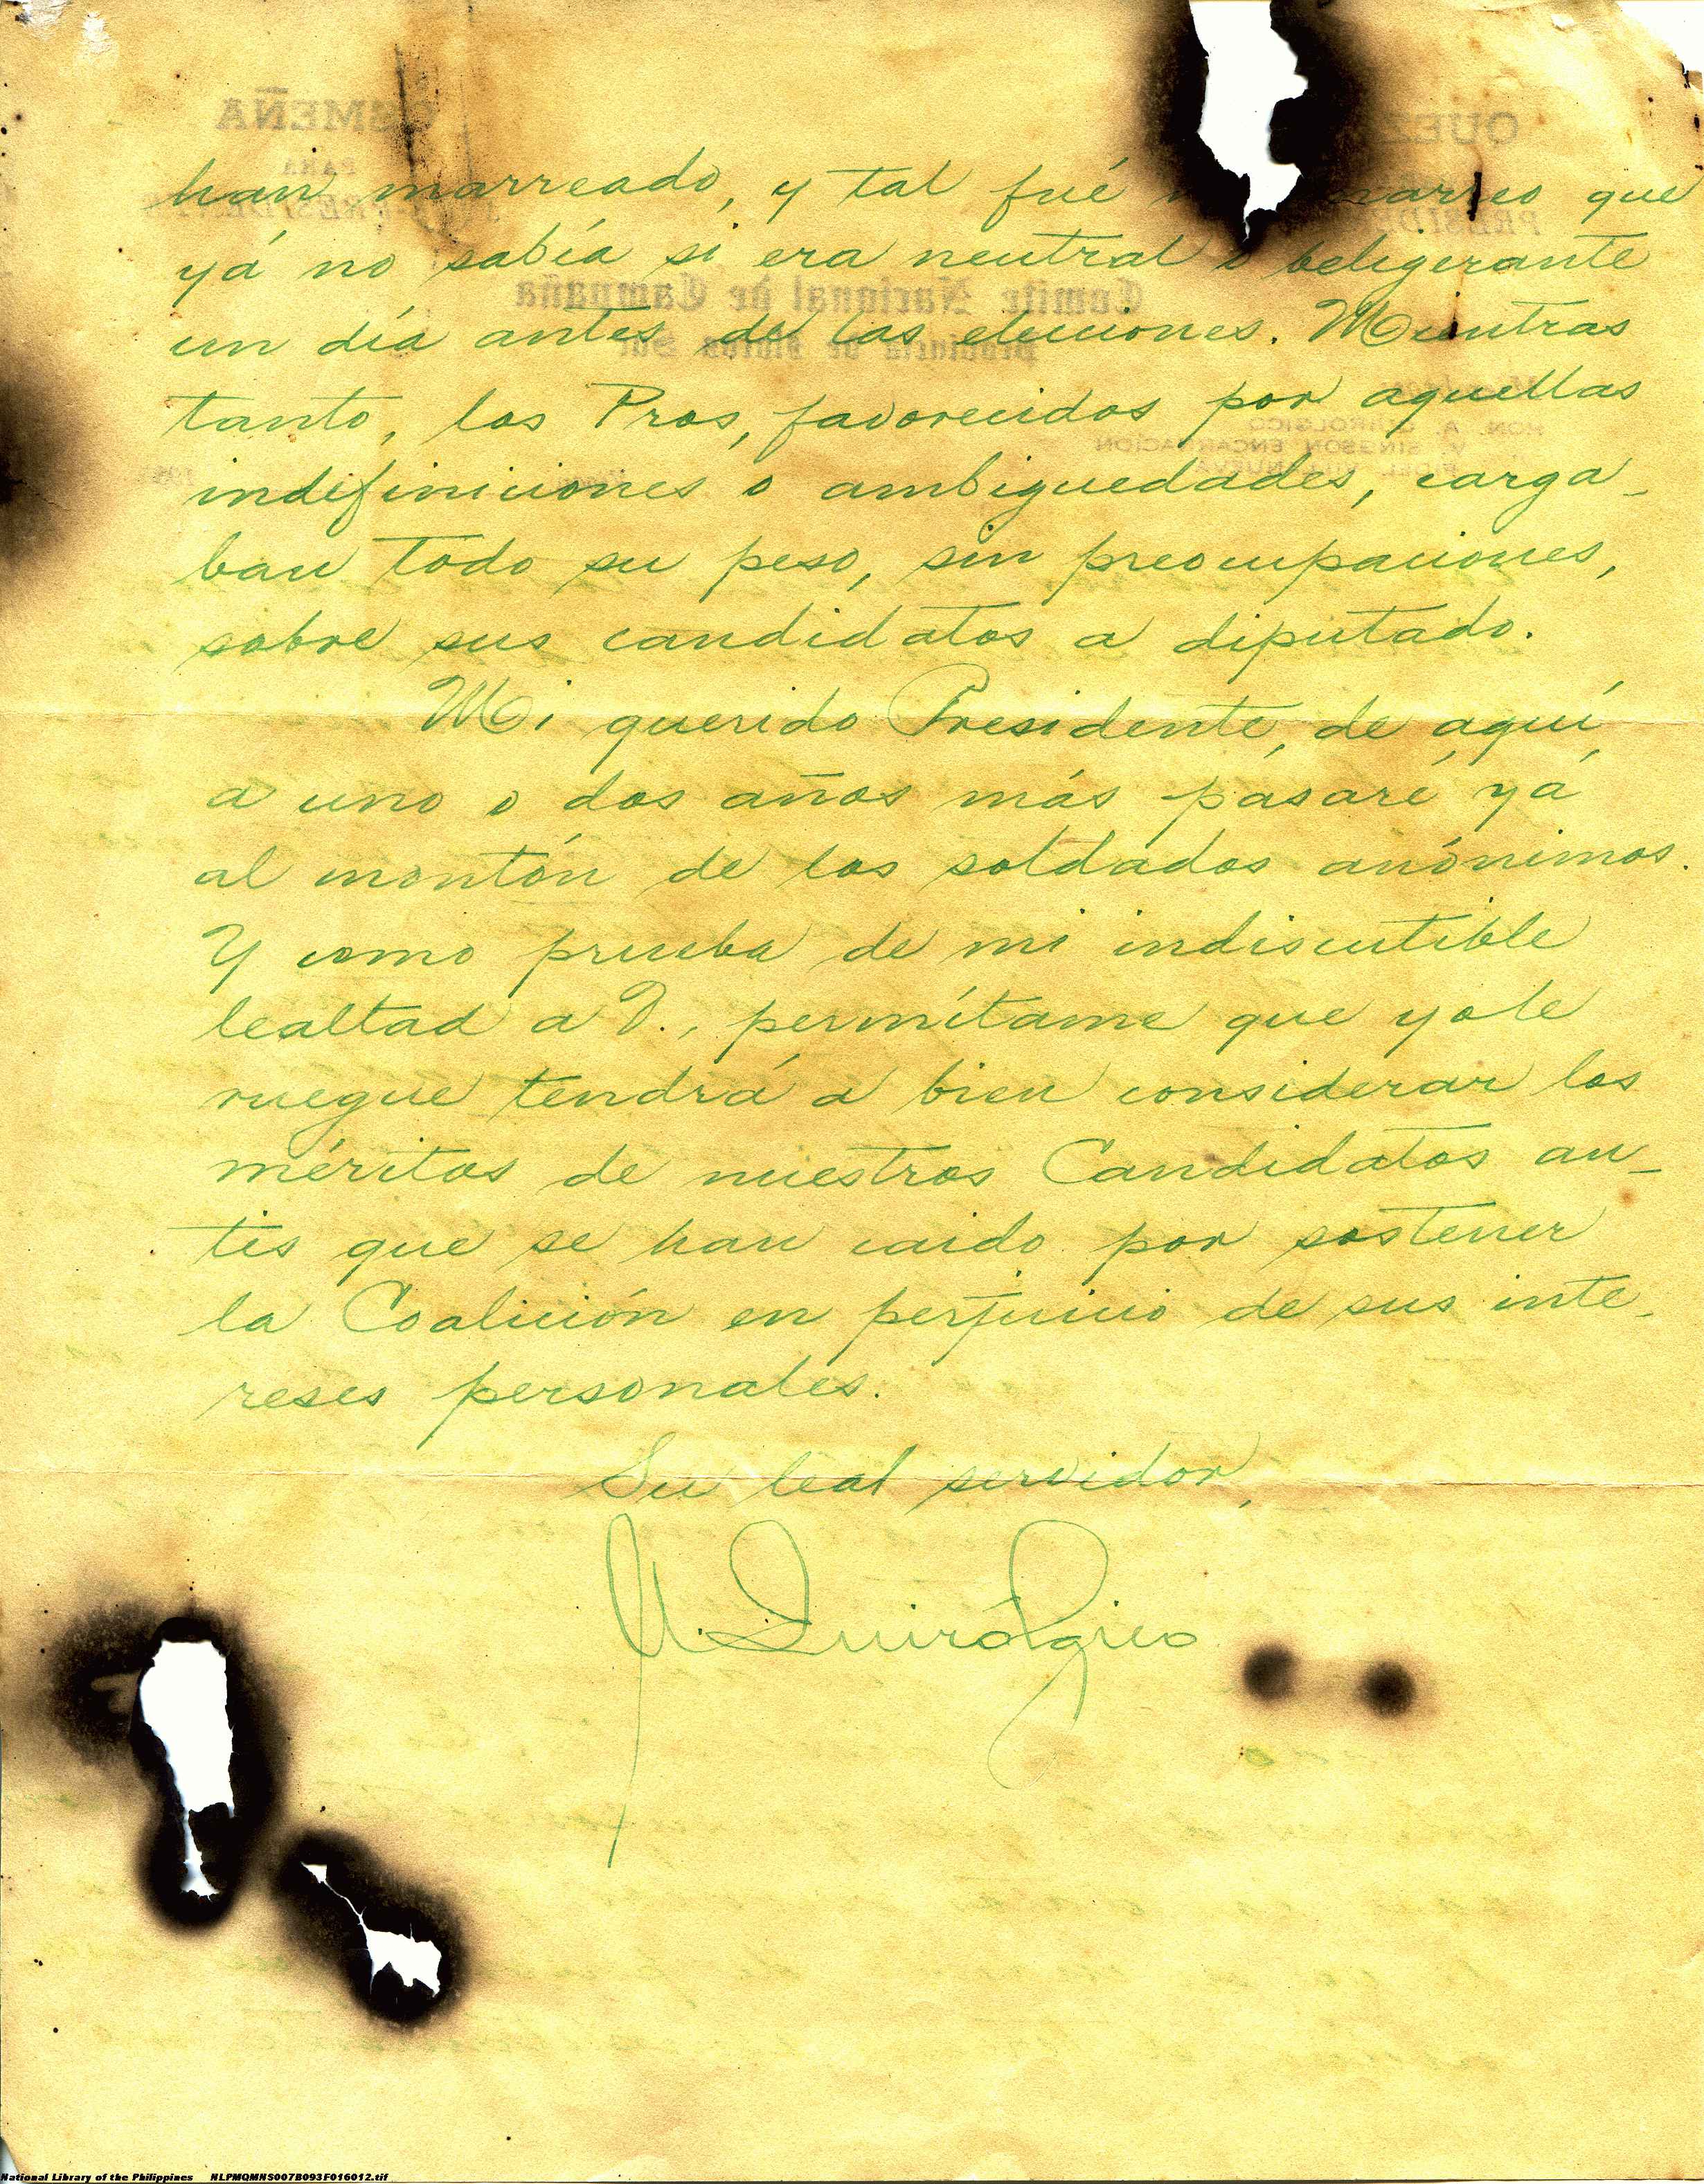 han marreado, y tal fué marreo que
yá no sabía si era neutral o beligerante
un día antes de las elecciones. Mientras
tanto, los Pros, favorecidos por aquellas
indifiniciones o ambiguedades, carga-
ban todo su peso, sin preocupaciones,
sobre sus candidatos a diputado.
Mi querido Presidente, de aquí
a uno o dos años más pasaré yá
al montón de los soldados anónimos.
Y como prueba de mi indiscutible
lealtad a V., permítame que yo le
ruegue tendrá a bien considerar los
méritos de nuestros Candidatos an-
tis que se han caido por sostener
la Coalición en perjuicio de sus inte-
reses personales.
Su leal servidor,
A. Quirólgico
OSMEÑA
PARA
QUEZ
Comite Nacional de Campaña
Provincia de Ilocos Sur
HON. A. QUIROLGICO
V. SINGSON ENCARNACION
FIDEL VILLANUEVA
National Library of the Philippines NLPMQMNS007B093F016012.tif